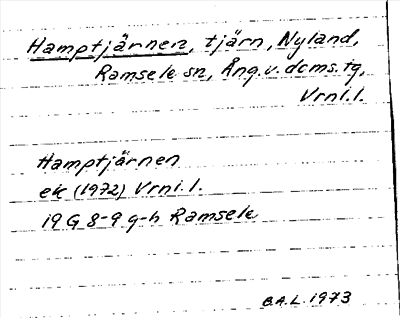 Hamptjärnen, tjärn, Nyland,
Ramsele sn, Ång.v. dcms. tg,
Vrnl.l.
Hamptjärnen
ek (1972) Vrnl.l.
19 G 8-9 g-h Ramsele
B.A.L. 1973